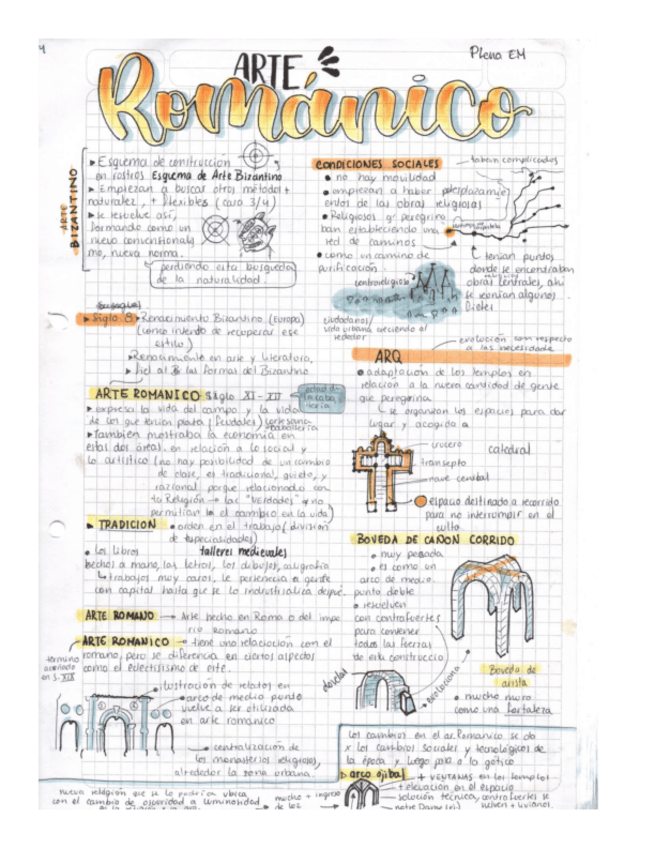 Plena EM
ARTE
Románico
ARTE BIZANTINO
▸ Esquema de construcción
en rostros Esquema de Arte Bizantino
▸ Empiezan a buscar otros métodos +
naturalez, + flexibles (cara 3/4)
▸ se resuelve así,
formando como un
nuevo convencionalis
mo, nueva norma.
perdiendo esta búsqueda
de la naturalidad.
▸ Siglo 8 ▸ Renacimiento Bizantino (Europa)
(como intento de recuperar ese
estilo)
▸ Renacimiento en arte y literatura,
▸ fiel al las formas del Bizantino
ARTE ROMANICO siglo XI - XII
edad de
la caba
llería
▸ expresa la vida del campo y la vida
de los que tenían plata (feudales) cortesana
caballería
▸ También mostraba la economía en
estas dos áreas. en relación a lo social y
lo artístico (no hay posibilidad de un cambio
de clase, el tradicional, quieto, y
racional porque relacionado con
la Religión → las "verdades" no
permitían el cambio en la vida)
▸ TRADICION • orden en el trabajo (división
de especialidades)
• los libros talleres medievales
hechos a mano, las letras, los dibujos, caligrafía
↳ trabajos muy caros, le pertenecía a gente
con capital hasta que se lo industrializa despué.
ARTE ROMANO → Arte hecho en Roma o del impe
rio romano
ARTE ROMANICO → tiene una relación con el
romano, pero se diferencia en ciertos aspectos
como el eclectisismo de este.
término
acuñado
en S. XIX
• ilustración de relatos en
• arco de medio punto
vuelve a ser utilizada
en arte romanico
• centralización de
los monasterios religiosos,
alrededor la zona urbana.
CONDICIONES SOCIALES
• no hay movilidad
• empiezan a haber desplazamie
entos de las obras religiosas
• Religiosos q' peregrino
ban estableciendo una
red de caminos
• como un camino de
purificación
habían complicados
↳ tenían puntos
donde se encontraban
obras centrales, ahí
se reunían algunos
fieles
centro religioso
ciudadanos/
vida urbana creciendo al
rededor
evolución con respecto
a las necesidade
ARQ
• adaptación de los templos en
relación a la nueva cantidad de gente
que peregrina
↳ se organizan los espacios para dar
lugar y acogida a
crucero
catedral
transepto
nave central
espacio destinado a recorrido
para no interrumpir en el
culto
BOVEDA DE CAÑON CORRIDO
• muy pesada
• es como un
arco de medio
punto doble
• resuelven
con contrafuertes
para contener
todas las fuerzas
de esta construccio
dovelas
evoluciona
Boveda de
arista
• mucho muro
como una fortaleza
los cambios en el ar. Romanico se da
x los cambios sociales y tecnológicos de
la época y luego pasa a lo gótico
▸ arco ojibal + VENTANAS en los templos
+ elevación en el espacio
solución técnica, contrafuertes se
vuelven + livianos.
nueva religión que se le podría ubica
con el cambio de oscuridad a luminosidad
mucho + ingreso
→ de luz